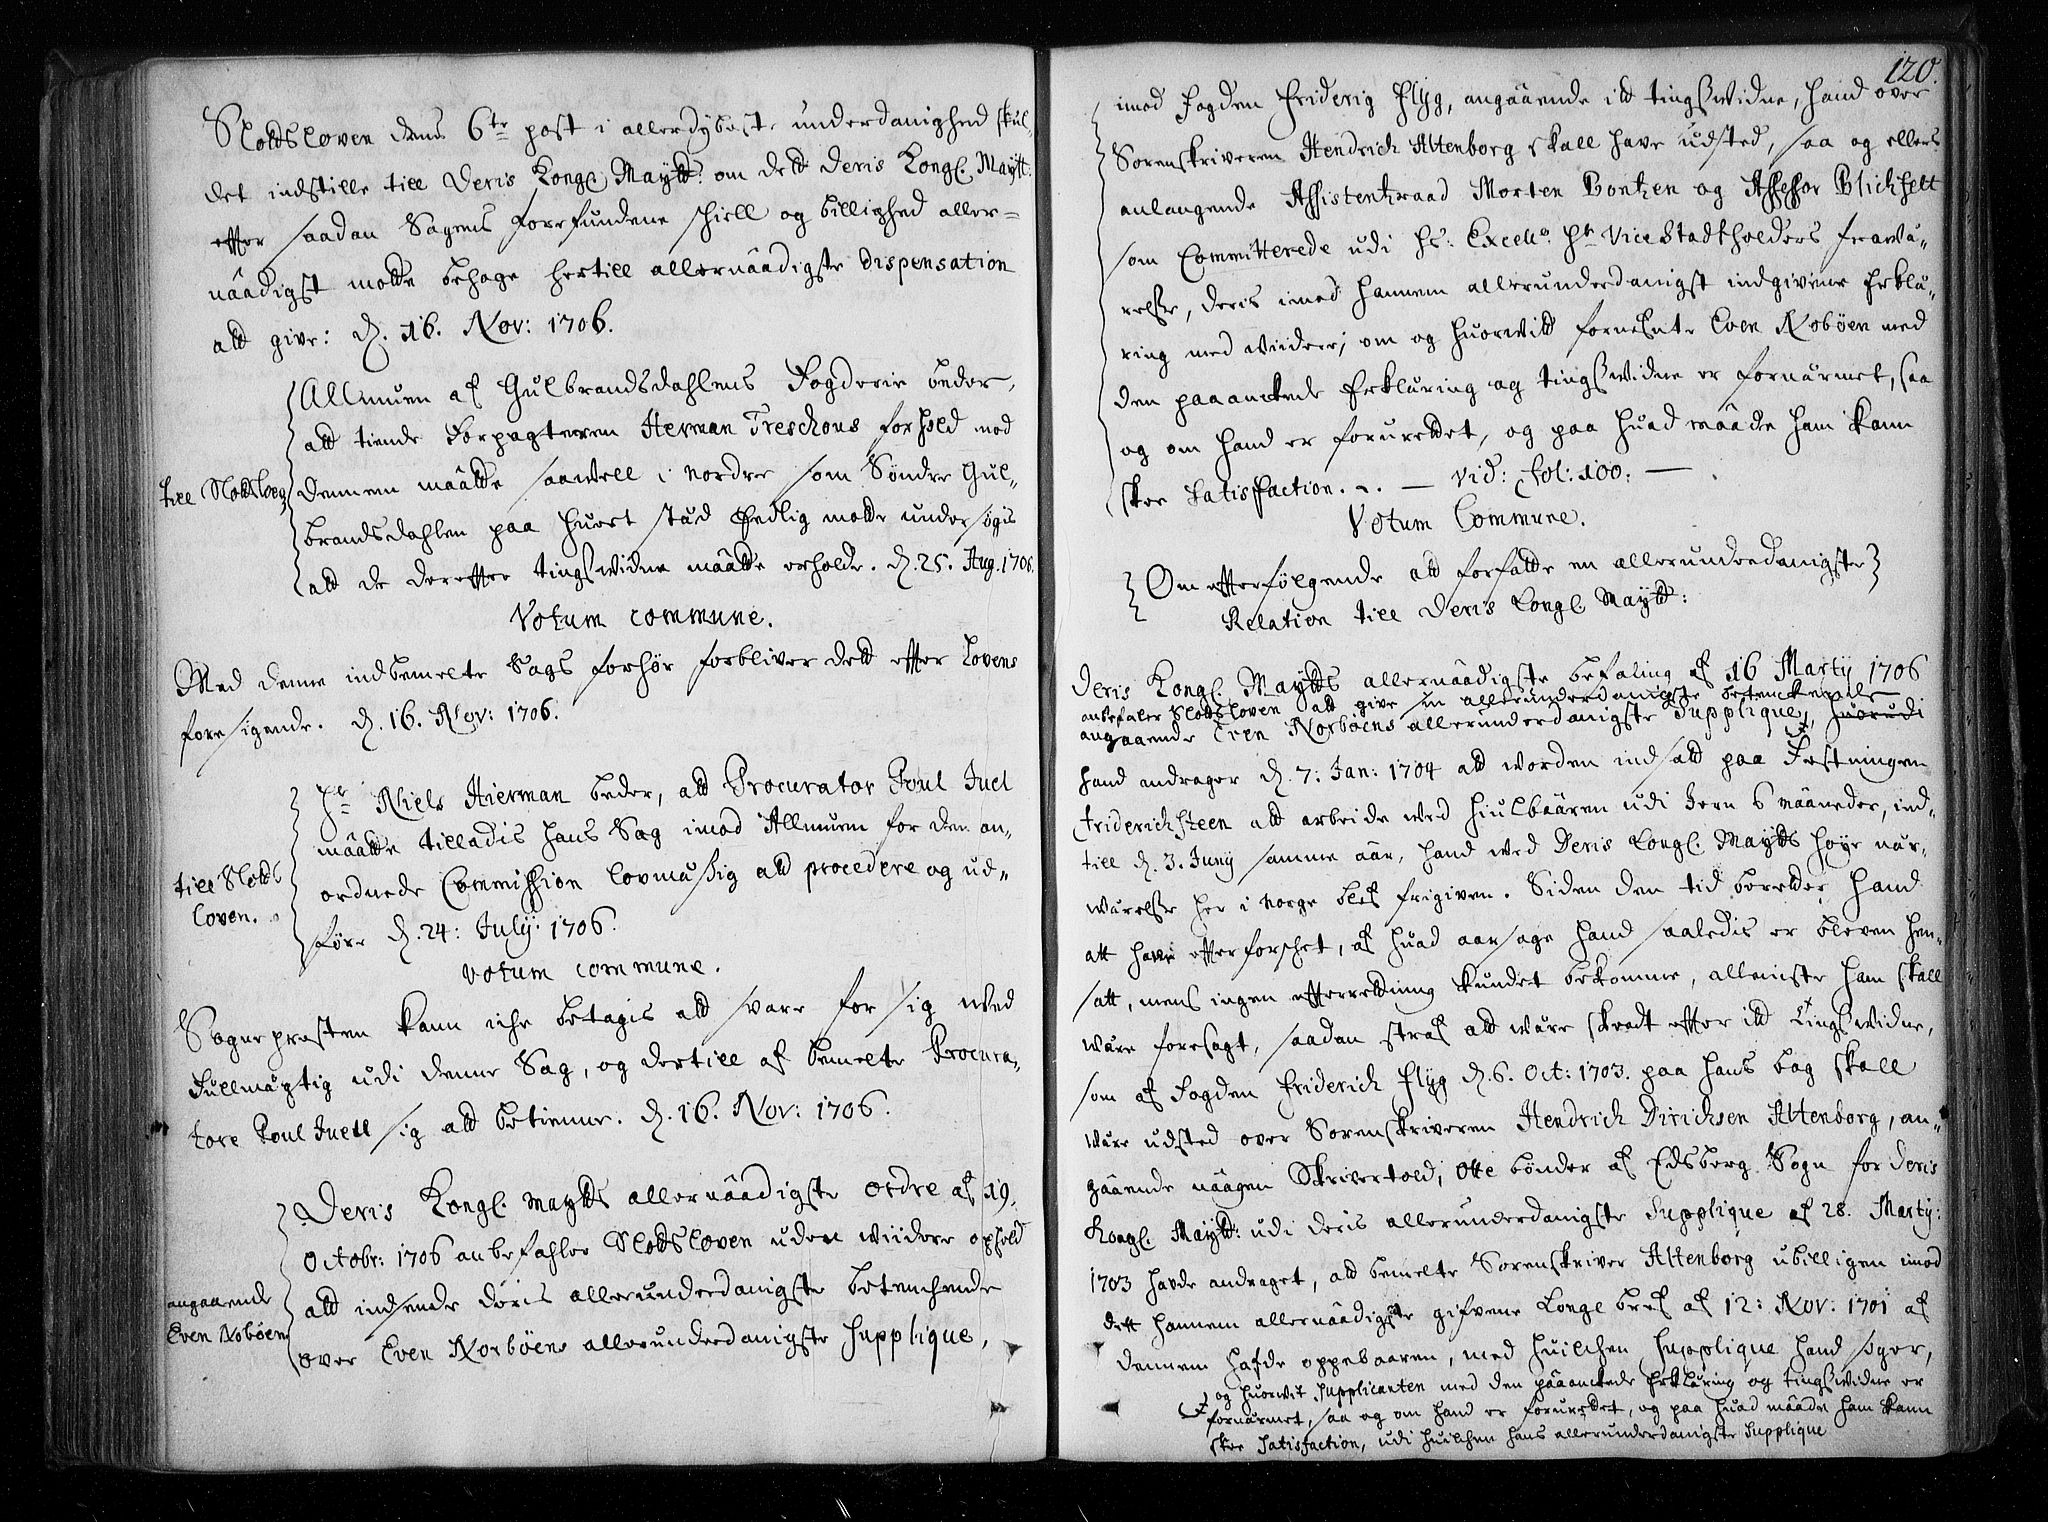 Slodsloven dens 6te post i allerdybeste underdanighed skul-
det indstille till Deris Kongl. Maytt: om dett Deris Kongl. Maytt:
effter saadan Sagens forefundene skiell og billighed aller=
naadigst motte behage hertill allernaadigste Dispensation
att give: d. 16. Nov: 1706.
Allmuen af Gulbrandsdahlens Fogderie beder,
att tiende Forpagteren Herman Treschous forhold mod
till Slotsloug
dennem maatte saawell i Nordre som Søndre Gul-
brandsdahlen paa huert stæd Endlig motte undersøgis
att de dereffter tingswidne maatte erholde. d. 25. Aug. 1706.
Votum commune.
Med denne indbemelte Sags forhør forbliver dett effter Lovens
foresigende. d. 16. Nov: 1706.
Hr Niels Hierman beder, att Procurator Poul Juel
maatte tilladis hans Sag imod Allmuen for den an-
till Slots
Loven.
ordnede Commission lovmæssig att procedere og ud-
føre d. 24: July: 1706.
Votum commune.
Sognepræsten kann iche betagis att svare for sig med
Fullmægtig udi denne Sag, og dertill af bemelte Procura-
tore Poul Juell sig att betienne. d. 16. Nov: 1706.
Deris Kongl. Maytts allernaadigste ordre af 19.
Octobr: 1706 anbefahler Slotsloven uden wiidere ophold
angaaende
Even Nobøen
att indsende deris allerunderdanigste betenchende
over Even Norbøens allerunderdanigste Supplique,
120.
imod Fogden Friderig Flyg, angaaende itt tingswidne, hand over
Sorenskriveren Hendrich Altenborg skall have udsted, saa og ellers
anlangende Assistentzraad Morten Bontzen og Assessor Blichfelt
som Committerede udi Hs: Excell. Hr ViceStadtholders frawæ-
relse, deris imod hannem allerunderdanigst indgivene Erklæ-
ring med wiidere; om og huorwitt fornefnte Even Nobøen med
den paaanckede Erklæring og tingswidne er fornærmet, saa
og om hand er forurettet, og paa huad maade ham kann
skee Satisfaction. — vid: fol: 100. —
Votum Commune.
Om effterfølgende att forfatte en allerunderdanigste
Relation till Deris Kongl. Maytt:
Deris Kongl. Maytts allernaadigste befaling af 16 Martij 1706
anbefaler Slotsloven att give sin allerunderdanigste betenckende
angaaende Even Norbøens allerunderdanigste Supplique, huorudi
hand andrager d. 7: Jan: 1704 att worden indsatt paa Festningen
Friderichsteen att arbeide wed Hiulbaaren udi Jern 6 maaneder, ind-
till d. 3. Juny samme aar, hand wed Deris Kongl. Maytts høye nær-
wærelse her i Norge blef frigiven. Siden den tid beretter hand
att have effterforschet, af huad aarsage hand saaledis er bleven hen-
satt, mens ingen effterretning kundet bekomme, alleniste ham skall
være foresagt, saadan straf att wære skeedt effter itt tingswidne,
som af Fogden Friderich Flyg d. 6. Oct: 1703. paa hans bag skall
wære udsted over Sorenskriveren Hendrich Dirichsen Altenborg, an-
gaaende naagen Skrivertold, Otte bønder af Edsberg Sogn for Deris
Kongl. Maytt: udi deris allerunderdanigste Supplique af 28. Marty:
1703 hafde andraget, att bemelte Sorenskriver Altenborg ubilligen imod
dett hannem allernaadigste gifvene Kongl bref af 12: Nov: 1701 af
dennem hafde oppebaaren, med huilchen Supplique hand siger,
og huorwit Supplicanten med den paaanckede Erklæring og tingswidne er
fornærmet, saa og om hand er forurettet, og paa huad maade ham kann
skee Satisfaction, udi huilchen hans allerunderdanigste Supplique